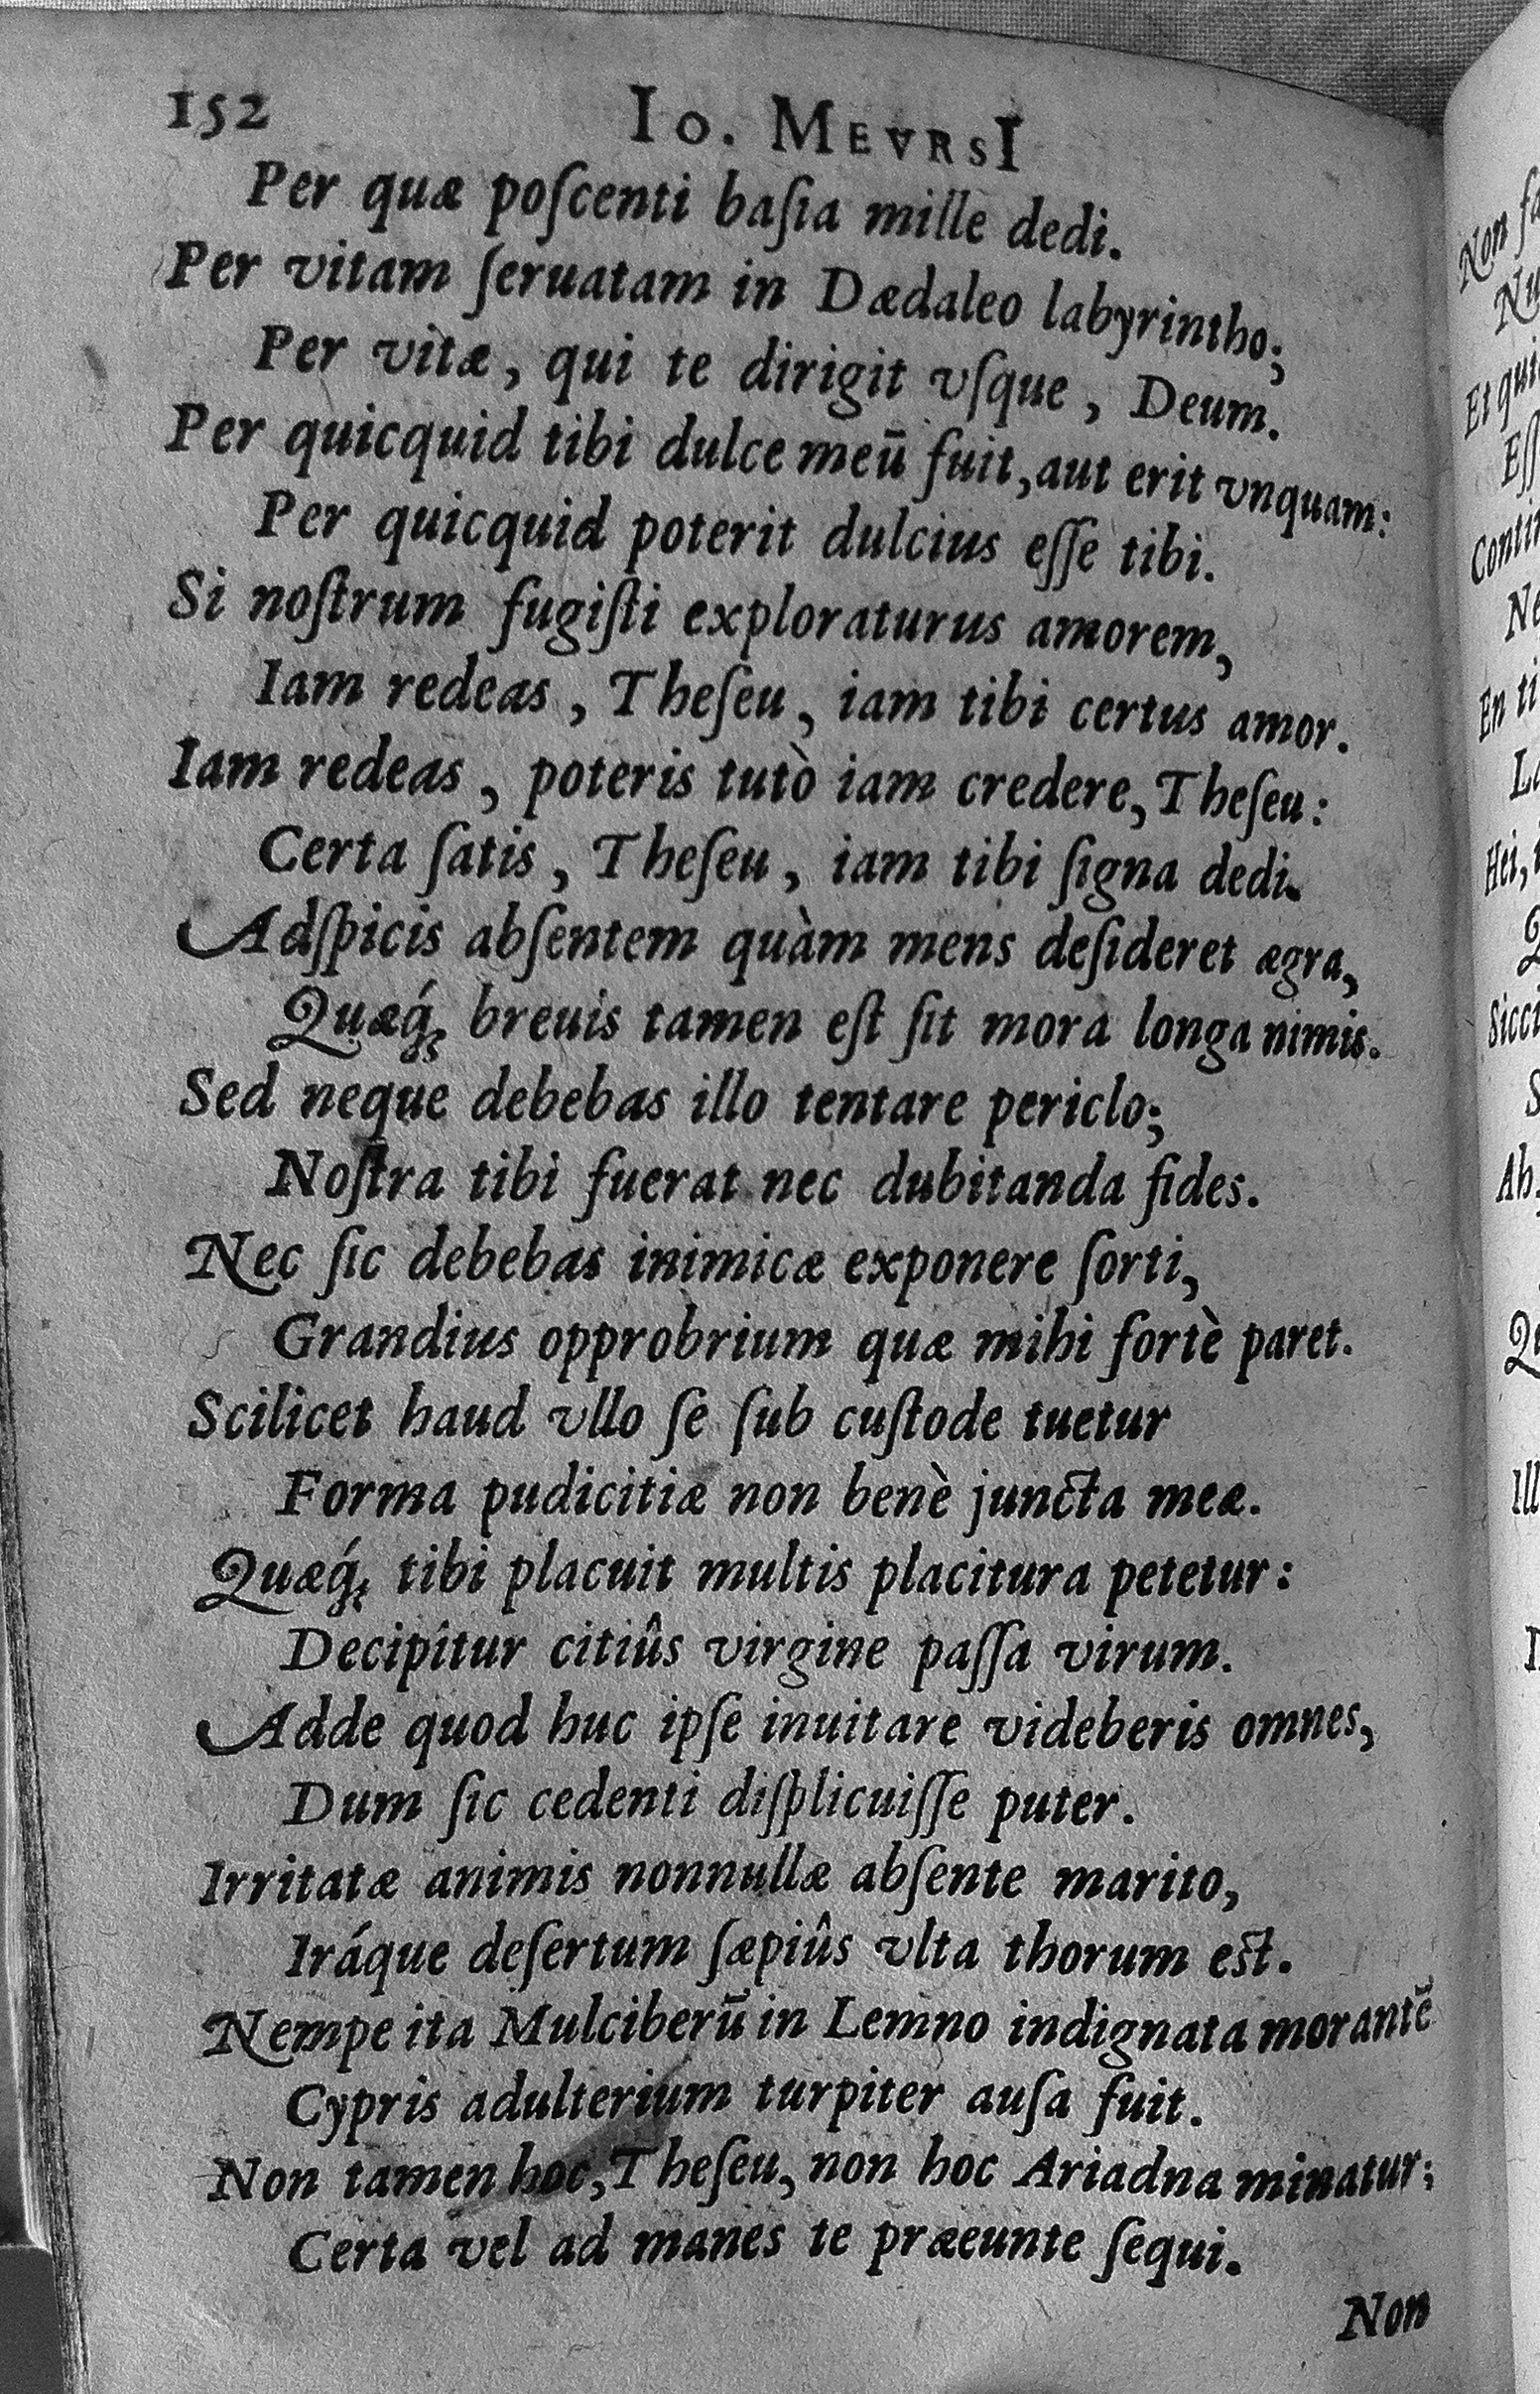 152 Io. MEVRSI
Per quæ poſcenti baſia mille dedi.
Per vitam ſeruatam in Dædaleo labyrintho;
Per vitæ, qui te dirigit vſque, Deum.
Per quicquid tibi dulce meū fuit, aut erit vnquam:
Per quicquid poterit dulcius eſſe tibi.
Si noſtrum fugiſti exploraturus amorem,
Iam redeas, Theſeu, iam tibi certus amor.
Iam redeas, poteris tutò iam credere, Theſeu:
Certa ſatis, Theſeu, iam tibi ſigna dedi.
Adſpicis abſentem quàm mens deſideret ægra,
Quæq́; breuis tamen eſt ſit mora longa nimis.
Sed neque debebas illo tentare periclo;
Noſtra tibi fuerat nec dubitanda fides.
Nec ſic debebas inimicæ exponere ſorti,
Grandius opprobrium quæ mihi fortè paret.
Scilicet haud vllo ſe ſub cuſtode tuetur
Forma pudicitiæ non benè juncta meæ.
Quæq́; tibi placuit multis placitura petetur:
Decipitur citiûs virgine paſſa virum.
Adde quod huc ipſe inuitare videberis omnes,
Dum ſic cedenti diſplicuiſſe puter.
Irritatæ animis nonnullæ abſente marito,
Iráque deſertum ſæpiûs vlta thorum eſt.
Nempe ita Mulciberū in Lemno indignata morantē
Cypris adulterium turpiter auſa fuit.
Non tamen hoc, Theſeu, non hoc Ariadna minatur;
Certa vel ad manes te præeunte ſequi.
Non